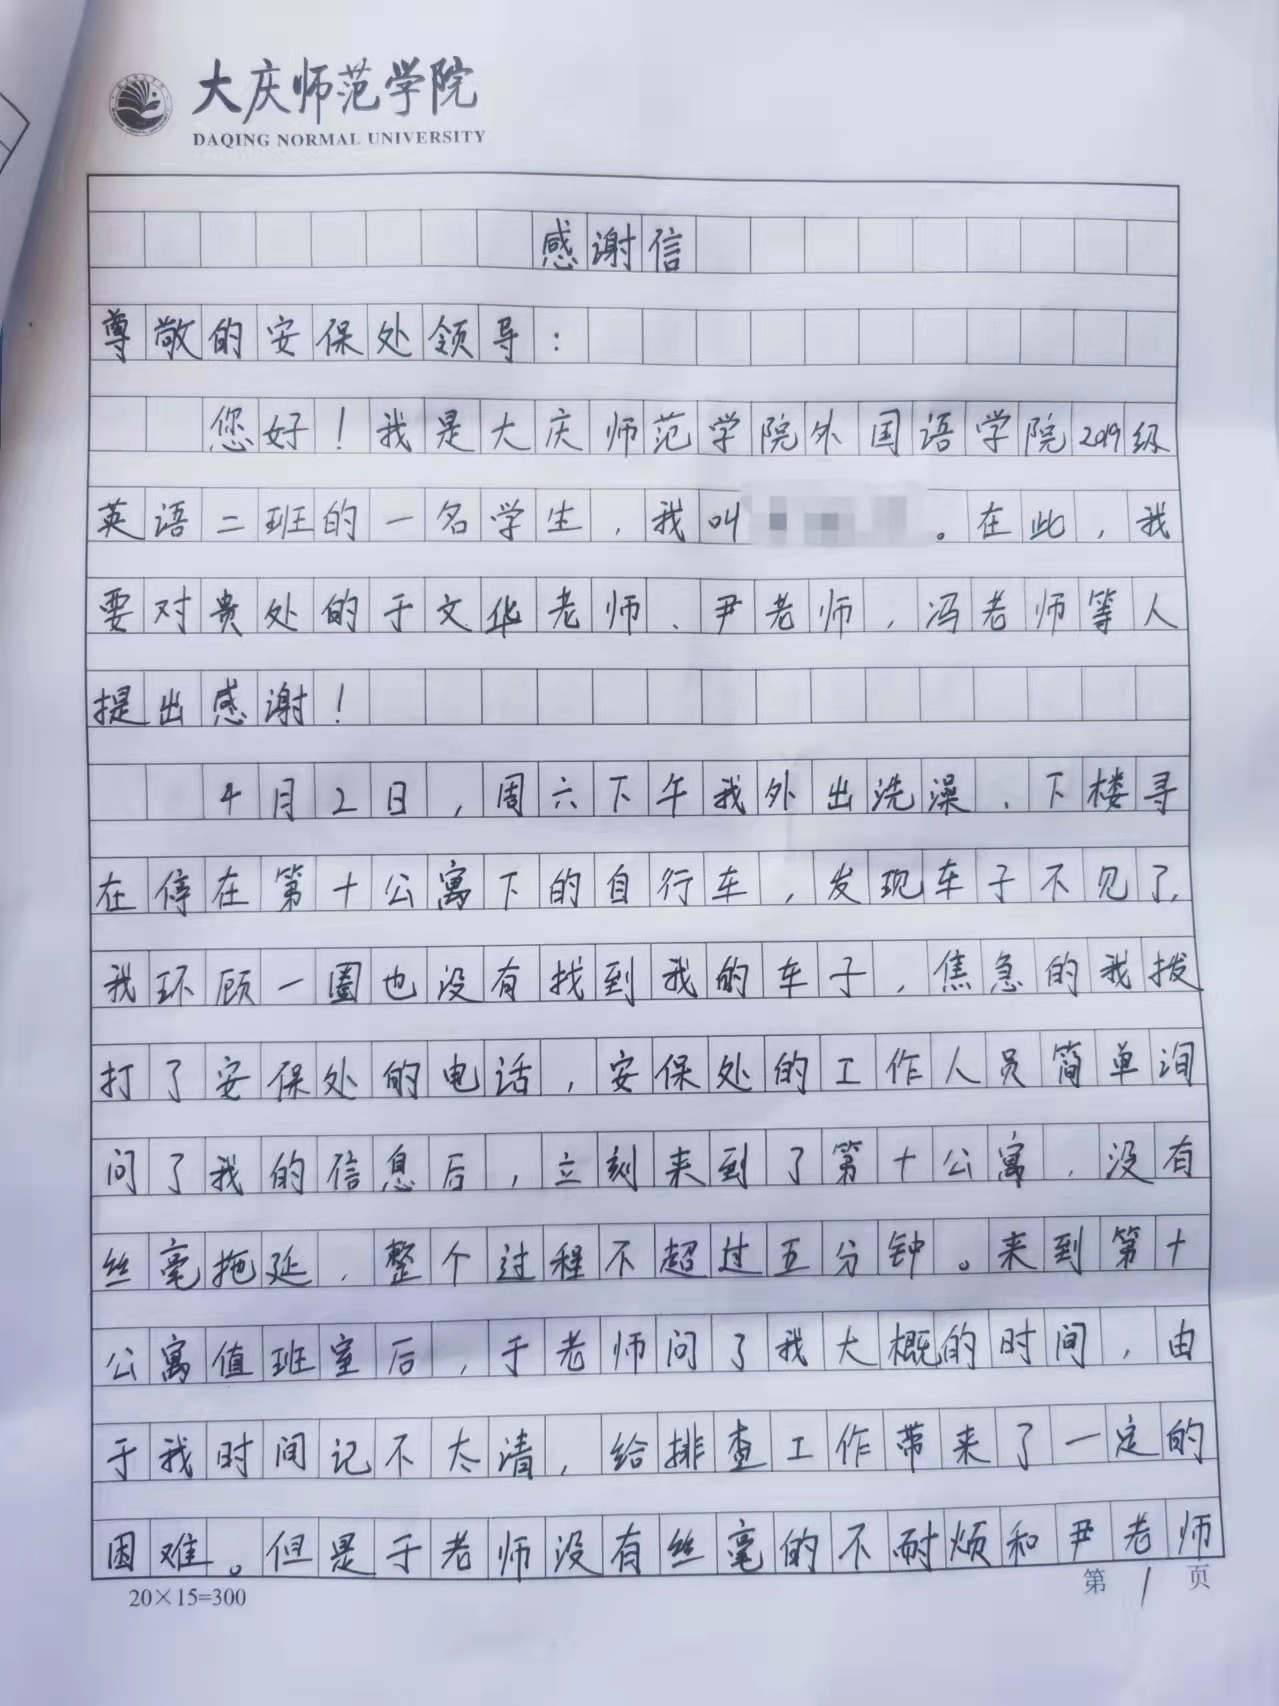 大庆师范学院
DAQING NORMAL UNIVERSITY
感谢信
尊敬的安保处领导：
您好！我是大庆师范学院外国语学院2019级
英语二班的一名学生，我叫。在此，我
要对贵处的于文华老师、尹老师，冯老师等人
提出感谢！
4月2日，周六下午我外出洗澡、下楼寻
在停在第十公寓下的自行车，发现车子不见了，
我环顾一圈也没有找到我的车子，焦急的我拨
打了安保处的电话，安保处的工作人员简单询
问了我的信息后，立刻来到了第十公寓，没有
丝毫拖延，整个过程不超过五分钟。来到第十
公寓值班室后，于老师问了我大概的时间，由
于我时间记不太清，给排查工作带来了一定的
困难。但是于老师没有丝毫的不耐烦和尹老师
20×15=300
第1页